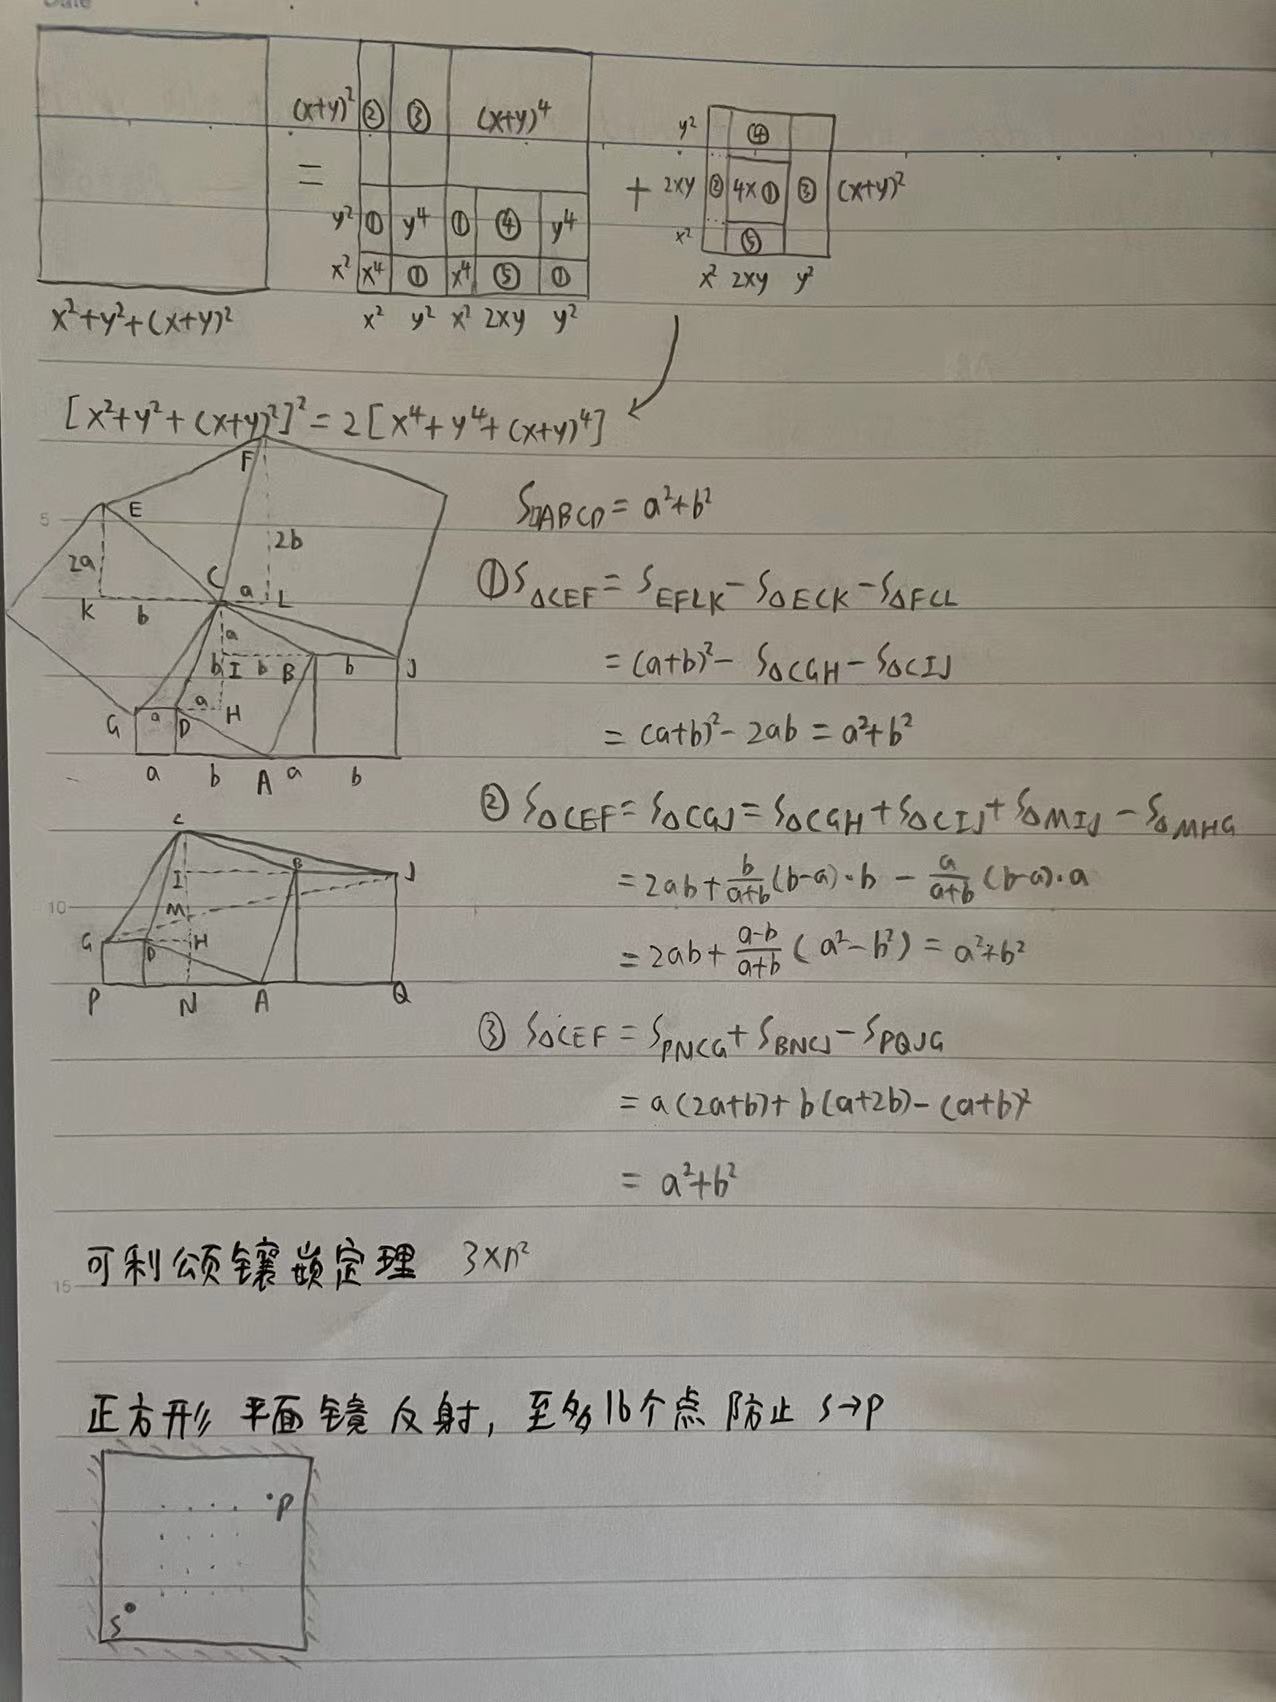 Date
(x+y)² ② ③ (x+y)⁴
=
y² ① y⁴ ① ④ y⁴
x² x⁴ ① x⁴ ⑤ ①
x² y² x² 2xy y²
x²+y²+(x+y)²
+
y² ④
2xy ② 4×① ③ (x+y)²
x² ⑤
x² 2xy y²
[x²+y²+(x+y)²]²=2[x⁴+y⁴+(x+y)⁴]
F
E
5
2a
2b
C a L
K b
a
b I b B b J
G a D a H
a b A a b
S□ABCD = a²+b²
①S△CEF = S EFLK - S△ECK - S△FCL
= (a+b)² - S△CGH - S△CIJ
= (a+b)² - 2ab = a²+b²
② S△CEF = S△CGJ = S△CGH + S△CIJ + S△MIJ - S△MHG
= 2ab + b/(a+b) (b-a)·b - a/(a+b) (b-a)·a
= 2ab + (a-b)/(a+b) (a²-b²) = a²+b²
C
I B J
10
M
G D H
P N A Q
③ S△CEF = S PNCG + S BNCJ - S PQJG
= a(2a+b) + b(a+2b) - (a+b)²
= a²+b²
可利颂镶嵌定理 3×n²
15
正方形 平面镜反射, 至多16个点 防止 S→P
P
S